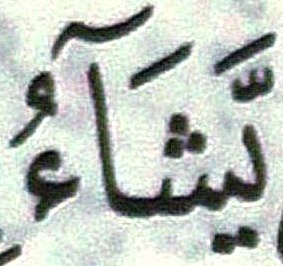 يَّشَآءُ